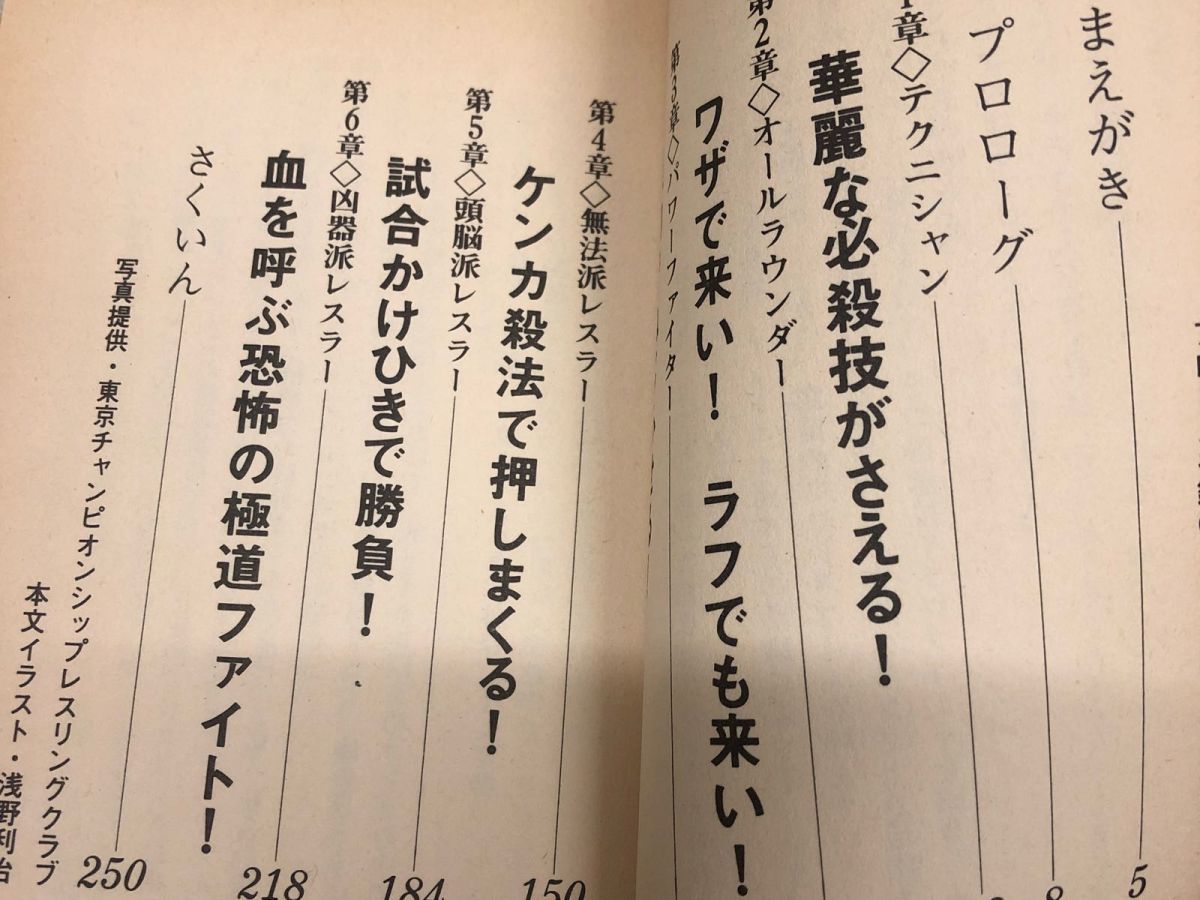 まえがき 5
プロローグ 8
1章◇テクニシャン
華麗な必殺技がさえる！
第2章◇オールラウンダー
ワザで来い！ ラフでも来い！
第3章◇パワーファイター
第4章◇無法派レスラー 150
ケンカ殺法で押しまくる！
第5章◇頭脳派レスラー 184
試合かけひきで勝負！
第6章◇凶器派レスラー 218
血を呼ぶ恐怖の極道ファイト！
さくいん 250
写真提供・東京チャンピオンシップレスリングクラブ
本文イラスト・浅野利治